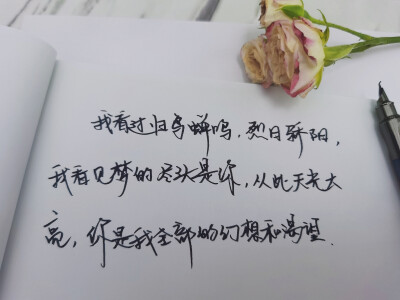 我看过归鸟蝉鸣,烈日骄阳,
我看见梦的尽头是你,从此天光大
亮,你是我全部的幻想和渴望.